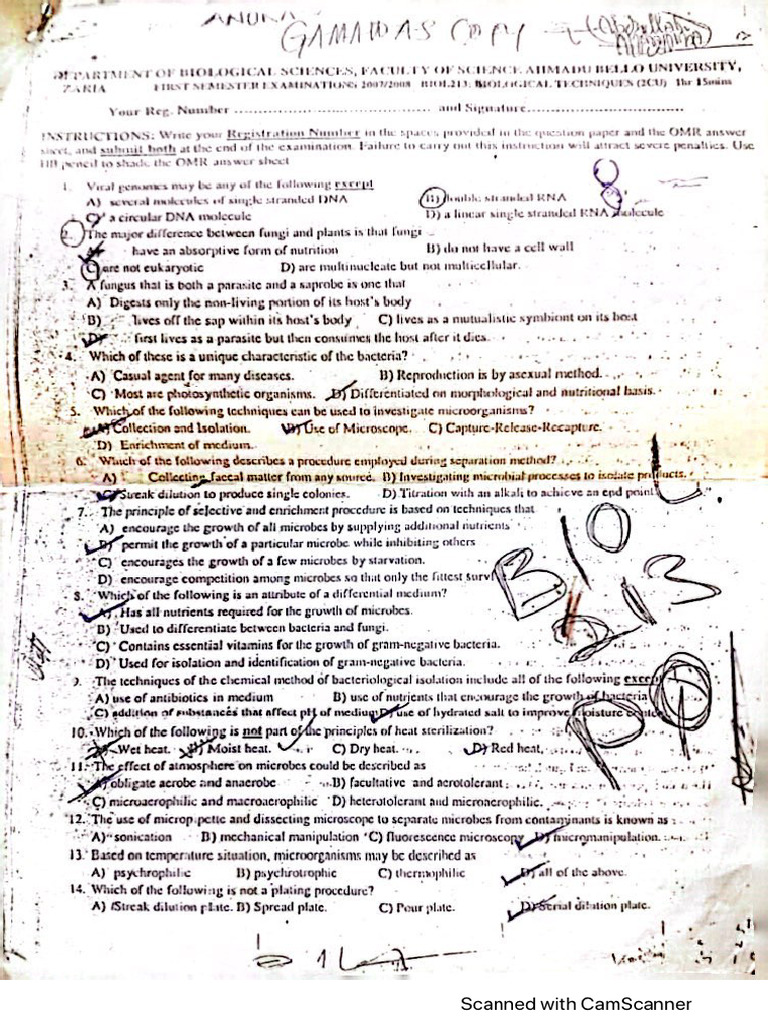 ANUKA
GAMAWAS COPY
DEPARTMENT OF BIOLOGICAL SCIENCES, FACULTY OF SCIENCE AHMADU BELLO UNIVERSITY,
ZARIA FIRST SEMESTER EXAMINATIONS 2007/2008 BIOL213: BIOLOGICAL TECHNIQUES (2CU) 1hr 15mins
Your Reg. Number ........................ and Signature........................
INSTRUCTIONS: Write your Registration Number in the spaces provided in the question paper and the OMR answer
sheet, and submit both at the end of the examination. Failure to carry out this instruction will attract severe penalties. Use
HB pencil to shade the OMR answer sheet
1. Viral genomes may be any of the following except
A) several molecules of single stranded DNA B) double stranded RNA
C) a circular DNA molecule D) a linear single stranded RNA molecule
2. The major difference between fungi and plants is that fungi
A) have an absorptive form of nutrition B) do not have a cell wall
C) are not eukaryotic D) are multinucleate but not multicellular.
3. A fungus that is both a parasite and a saprobe is one that
A) Digests only the non-living portion of its host's body
B) lives off the sap within its host's body C) lives as a mutualistic symbiont on its host
D) first lives as a parasite but then consumes the host after it dies.
4. Which of these is a unique characteristic of the bacteria?
A) Casual agent for many diseases. B) Reproduction is by asexual method.
C) Most are photosynthetic organisms. D) Differentiated on morphological and nutritional basis.
5. Which of the following techniques can be used to investigate microorganisms?
A) Collection and Isolation. B) Use of Microscope. C) Capture-Release-Recapture.
D) Enrichment of medium.
6. Which of the following describes a procedure employed during separation method?
A) Collecting faecal matter from any source. B) Investigating microbial processes to isolate products.
C) Streak dilution to produce single colonies. D) Titration with an alkali to achieve an end point
7. The principle of selective and enrichment procedure is based on techniques that
A) encourage the growth of all microbes by supplying additional nutrients
B) permit the growth of a particular microbe while inhibiting others
C) encourages the growth of a few microbes by starvation.
D) encourage competition among microbes so that only the fittest surv
BIOL
213
PQ
8. Which of the following is an attribute of a differential medium?
A) Has all nutrients required for the growth of microbes.
B) Used to differentiate between bacteria and fungi.
C) Contains essential vitamins for the growth of gram-negative bacteria.
D) Used for isolation and identification of gram-negative bacteria.
9. The techniques of the chemical method of bacteriological isolation include all of the following except
A) use of antibiotics in medium B) use of nutrients that encourage the growth of bacteria
C) addition of substances that affect pH of medium D) use of hydrated salt to improve moisture content
10. Which of the following is not part of the principles of heat sterilization?
A) Wet heat. B) Moist heat. C) Dry heat. D) Red heat.
11. The effect of atmosphere on microbes could be described as
A) obligate aerobe and anaerobe B) facultative and aerotolerant
C) microaerophilic and macroaerophilic D) heterotolerant and microaerophilic.
12. The use of micropipette and dissecting microscope to separate microbes from contaminants is known as
A) sonication B) mechanical manipulation C) fluorescence microscopy D) micromanipulation.
13. Based on temperature situation, microorganisms may be described as
A) psychrophilic B) psychrotrophic C) thermophilic D) all of the above.
14. Which of the following is not a plating procedure?
A) Streak dilution plate. B) Spread plate. C) Pour plate. D) Serial dilution plate.
Scanned with CamScanner